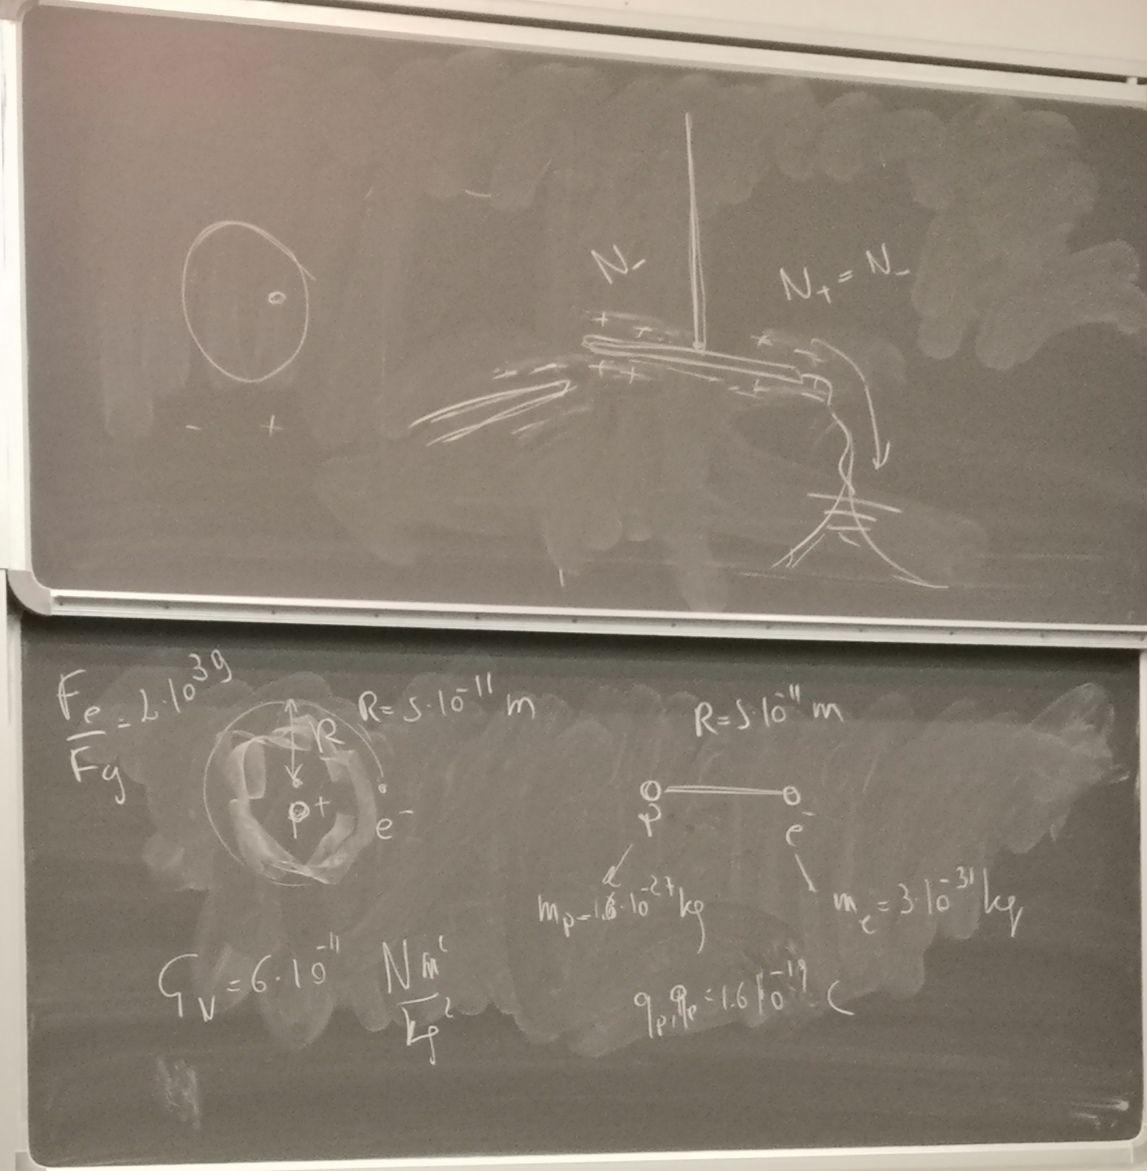 N-
N+ = N-
+ - + -
- +
Fe/Fg = 2·10^39
R
R=5·10^-11 m
R=5·10^-11 m
p+
e-
p
e-
mp=1.6·10^-27 kg
me=3·10^-31 kg
GN=6·10^-11 Nm²/kg²
qp,qe=1.6 10^-19 C